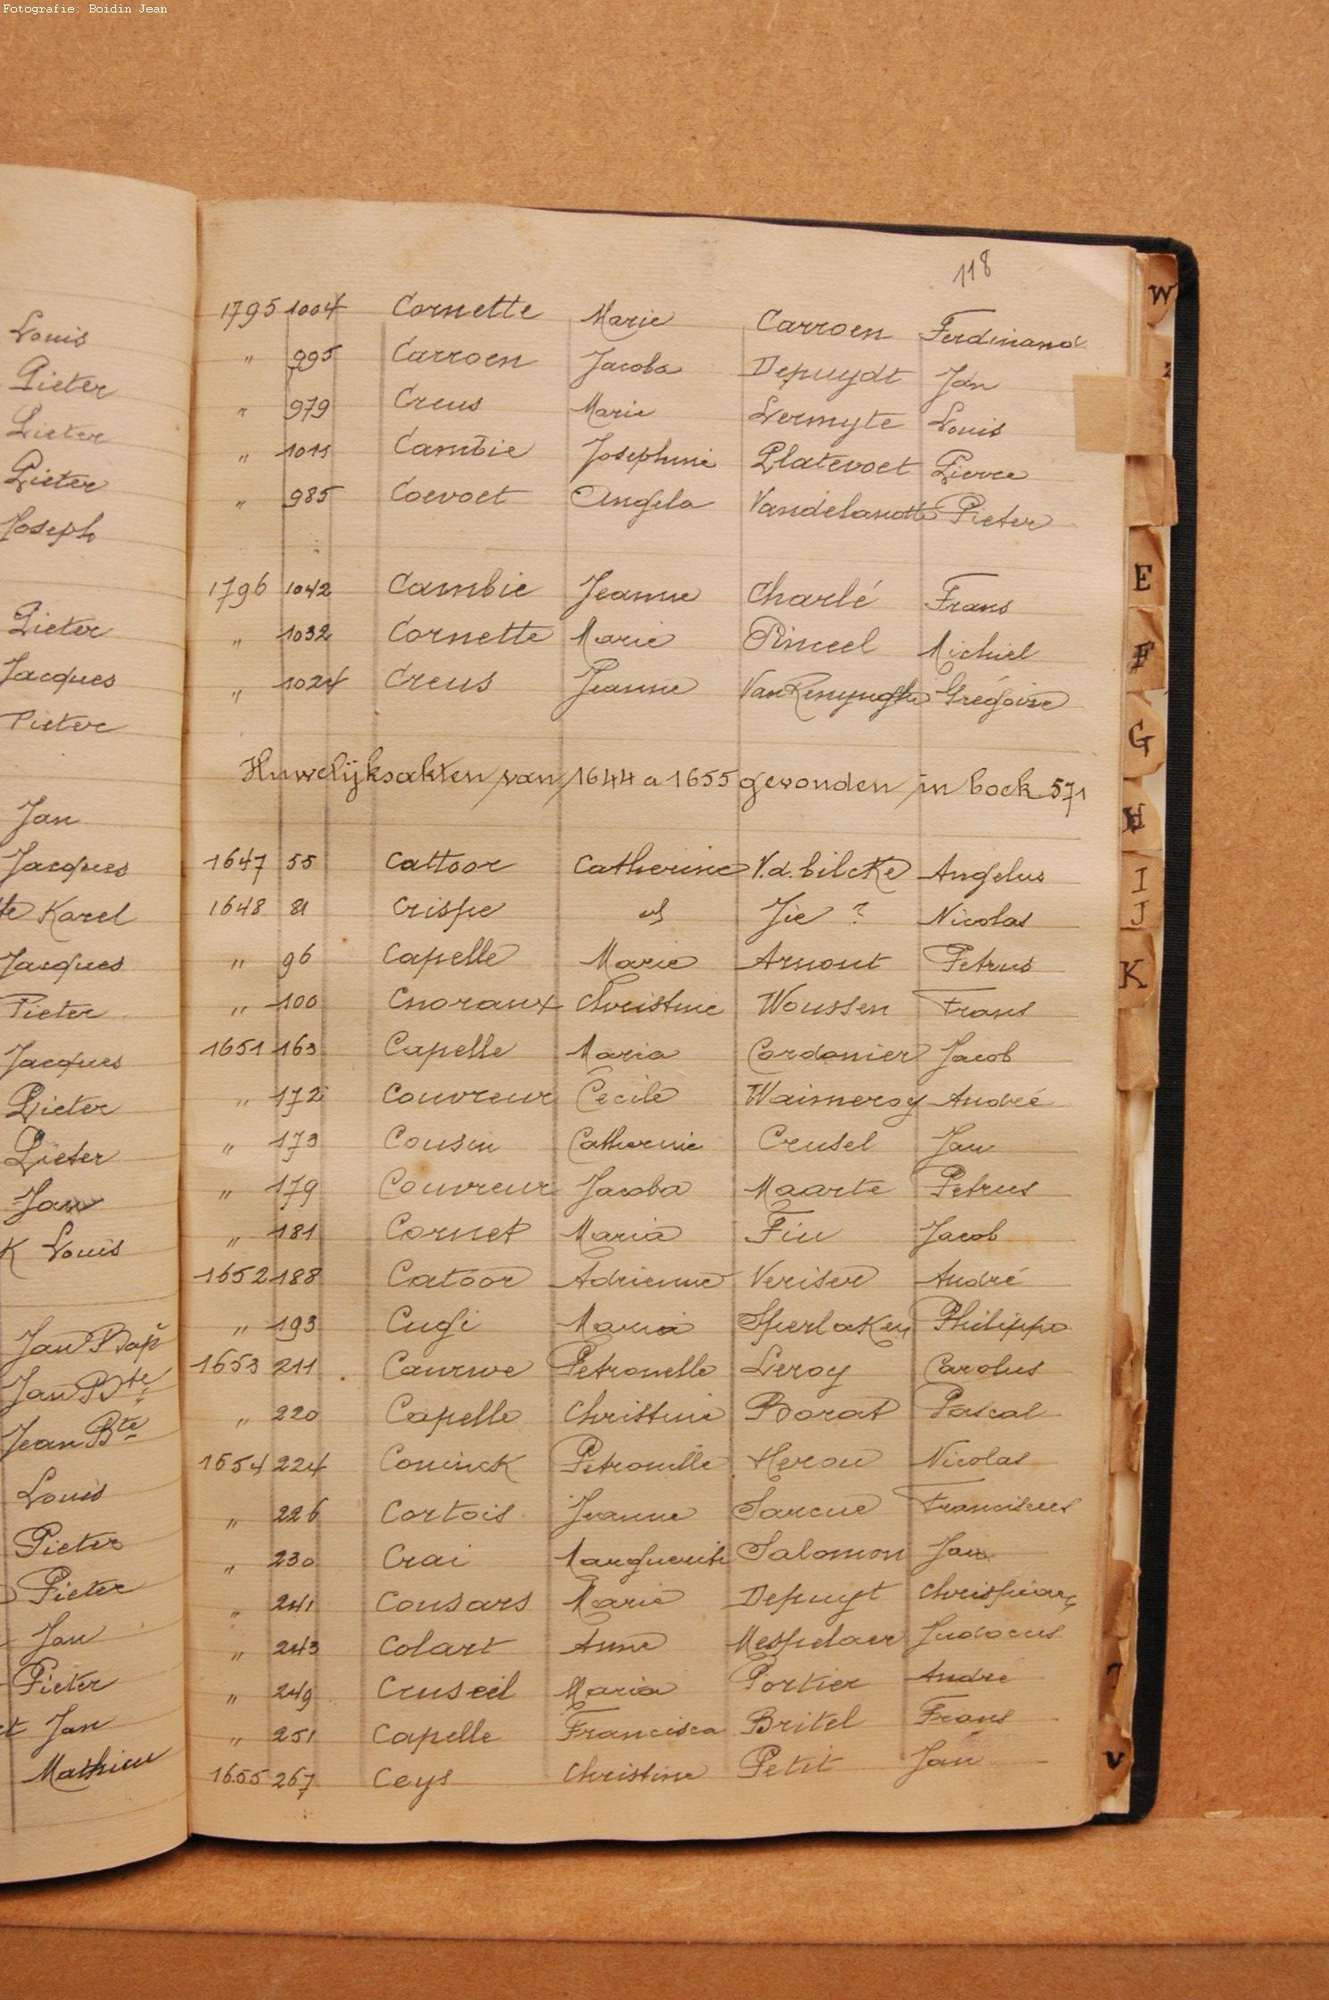 Fotografie: Boidin Jean
118
Louis
Pieter
Pieter
Pieter
Joseph
Pieter
Jacques
Pieter
Jan
Jacques
Karel
Jacques
Pieter
Jacques
Pieter
Pieter
Jan
K Louis
Jan Bapt
Jan Bte
Jean Bte
Louis
Pieter
Pieter
Jan
Pieter
Jan
Mathieu
1795 1004 Cornette Marie Carroen Ferdinand
" 995 Carroen Jacoba Depuydt Jan
" 979 Creus Marie Vermyte Louis
" 1011 Cambie Josephine Platevoet Pierre
" 985 Coevoet Angela Vandelanotte Pieter
1796 1042 Cambie Jeanne Charlé Frans
" 1032 Cornette Marie Pinceel Michiel
" 1024 Creus Jeanne Van Renynghe Grégoire
Huwelijksakten van 1644 a 1655 gevonden in boek 571
1647 55 Cattoor Catherine V.d. bilcke Angelus
1648 81 Crispe Jie ? Nicolas
" 96 Capelle Marie Arnout Petrus
" 100 Cnoraux Christine Woussen Frans
1651 163 Capelle Maria Cordonier Jacob
" 172 Couvreur Cecile Waimeroy André
" 173 Cousin Catherine Crusel Jan
" 179 Couvreur Jacoba Maarte Petrus
" 181 Cornet Maria Fiu Jacob
1652 188 Catoor Adrienne Veriser André
" 193 Cugi Maria Sperlaken Philippe
1653 211 Caurwe Petronelle Leroy Carolus
" 220 Capelle Christine Borat Pascal
1654 224 Coninck Petronille Herou Nicolas
" 226 Cortois Jeanne Sarcue Franciscus
" 230 Crai Marguerite Salomon Jan
" 241 Cousars Marie Depuyt
" 243 Colart Anne Mespelaer Judocus
" 249 Cruseel Maria Portier André
" 251 Capelle Francisca Britel Frans
1655 267 Ceys Christine Petit Jan
W
E
F
G
H
I
J
K
V